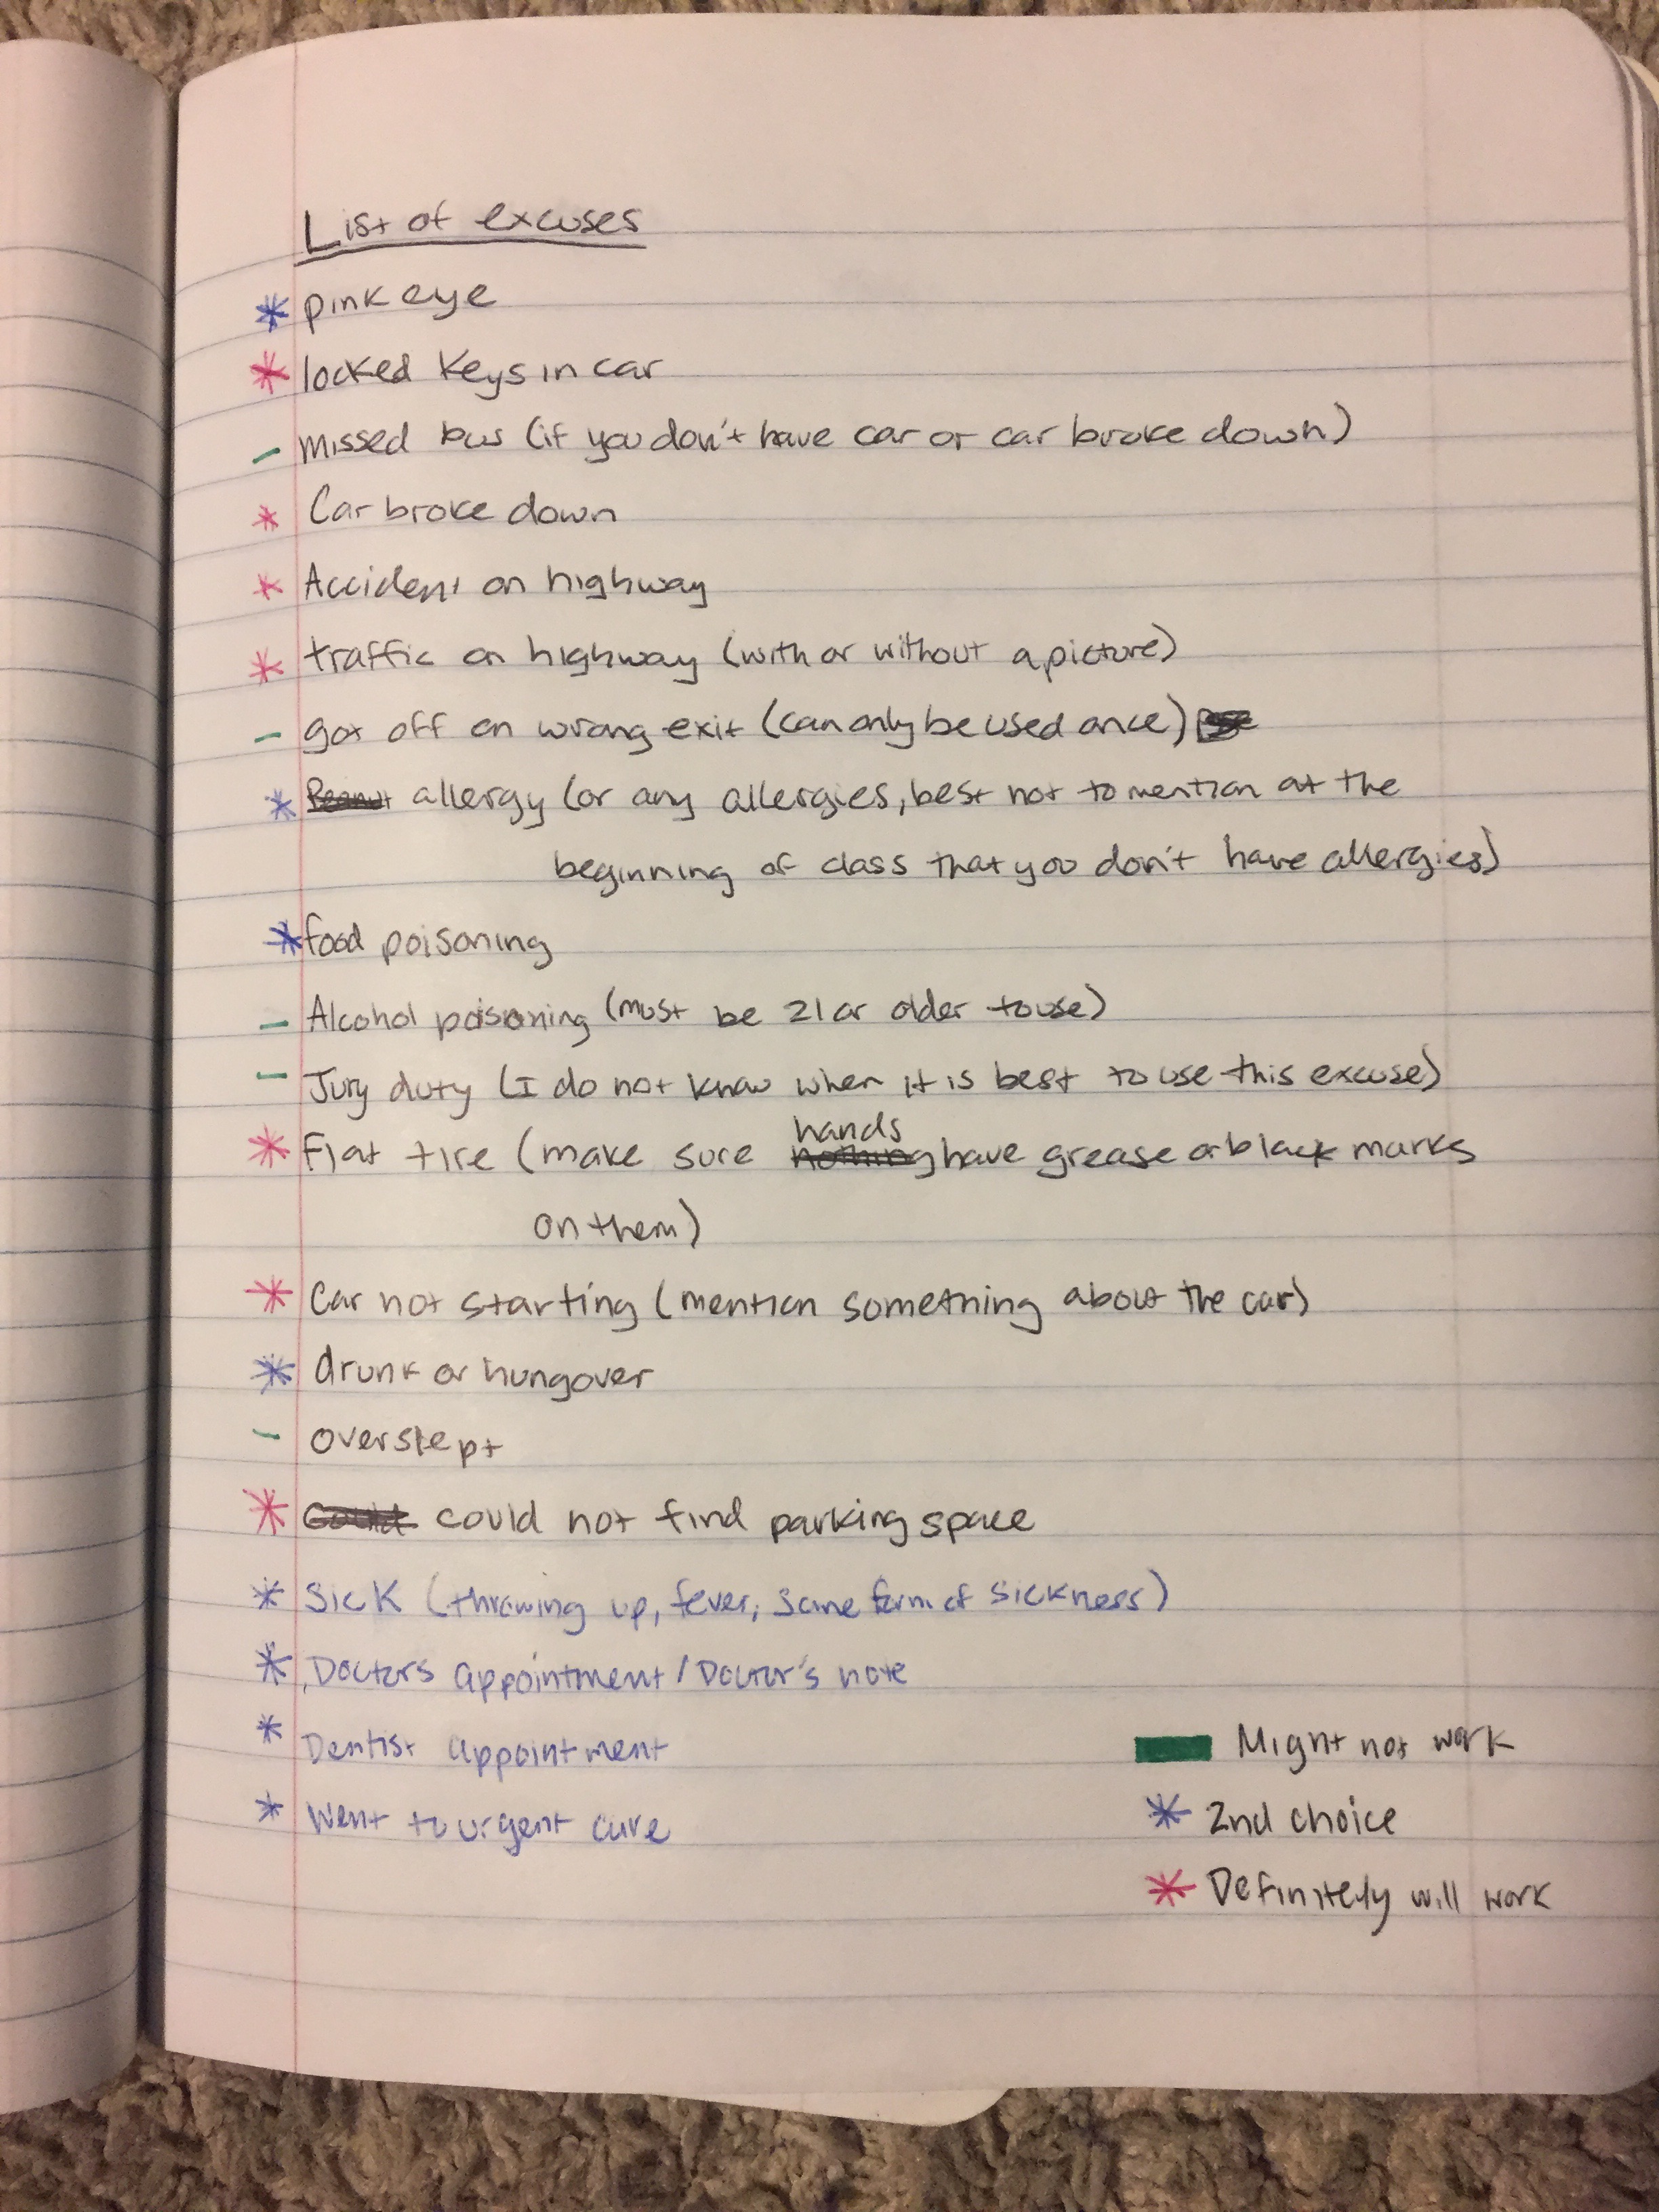 List of excuses
* pink eye
* locked keys in car
- missed bus (if you don't have car or car broke down)
* Car broke down
* Accident on highway
* traffic on highway (with or without a picture)
- got off on wrong exit (can only be used once)
* allergy (or any allergies, best not to mention at the
beginning of class that you don't have allergies)
* food poisoning
- Alcohol poisoning (must be 21 or older to use)
- Jury duty (I do not know when it is best to use this excuse)
* Flat tire (make sure hands have grease or black marks
on them)
* Car not starting (mention something about the car)
* drunk or hungover
- overslept
* could not find parking space
* Sick (throwing up, fever, some form of sickness)
* Docters appointment / Doctor's note
* Dentist appointment
* Went to urgent care
Might not work
* 2nd choice
* Definitely will work